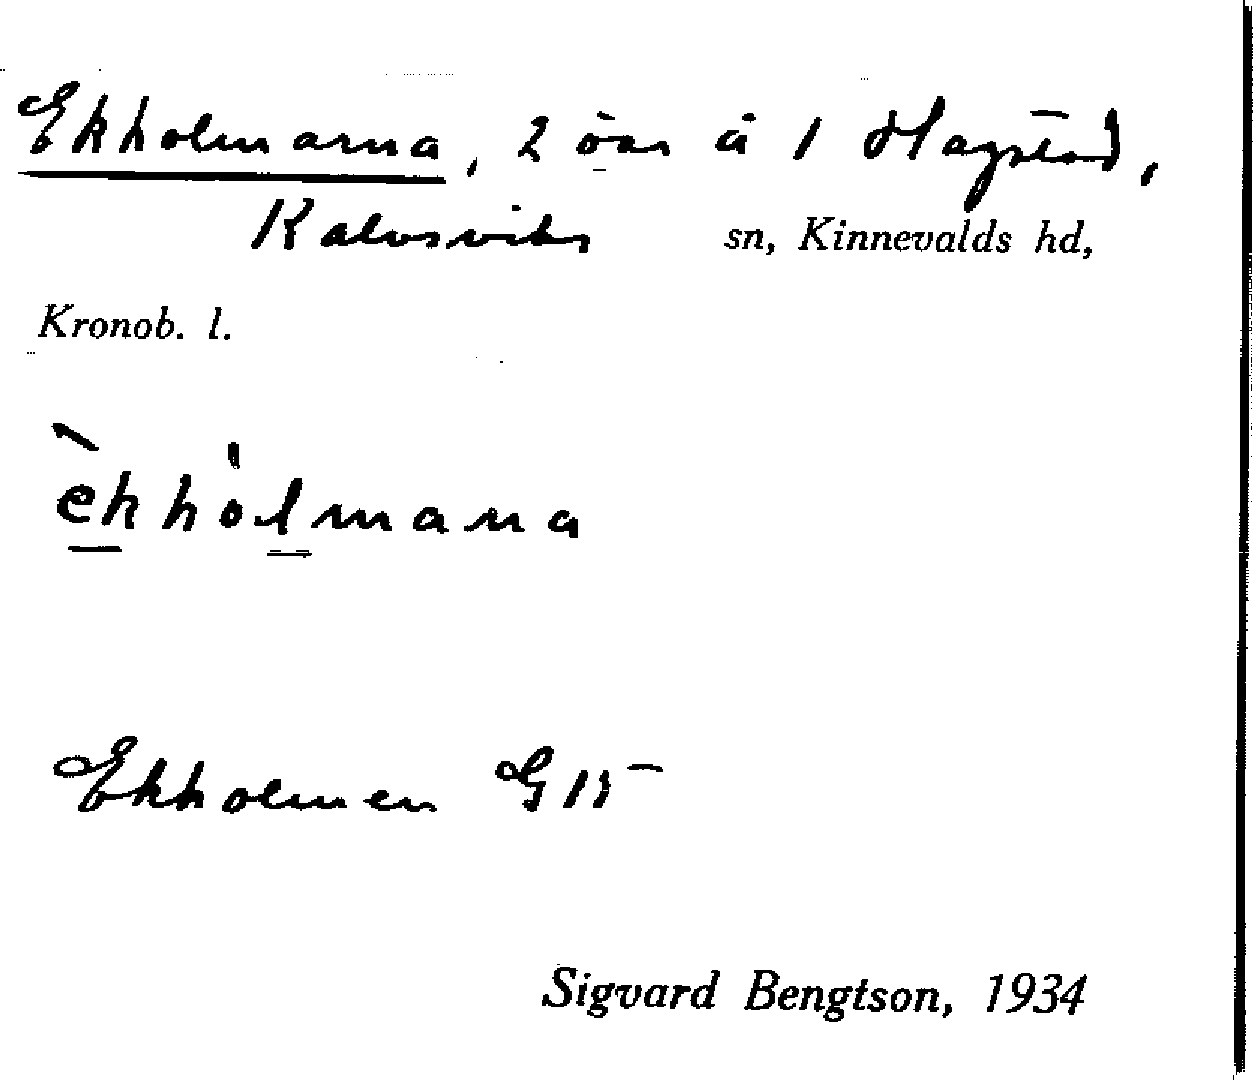 Ekholmarna, 2 öar å 1 Hagstad,
Kalvsviks sn, Kinnevalds hd,
Kronob. l.
èkhòlmana
Ekholmen G 15
Sigvard Bengtson, 1934